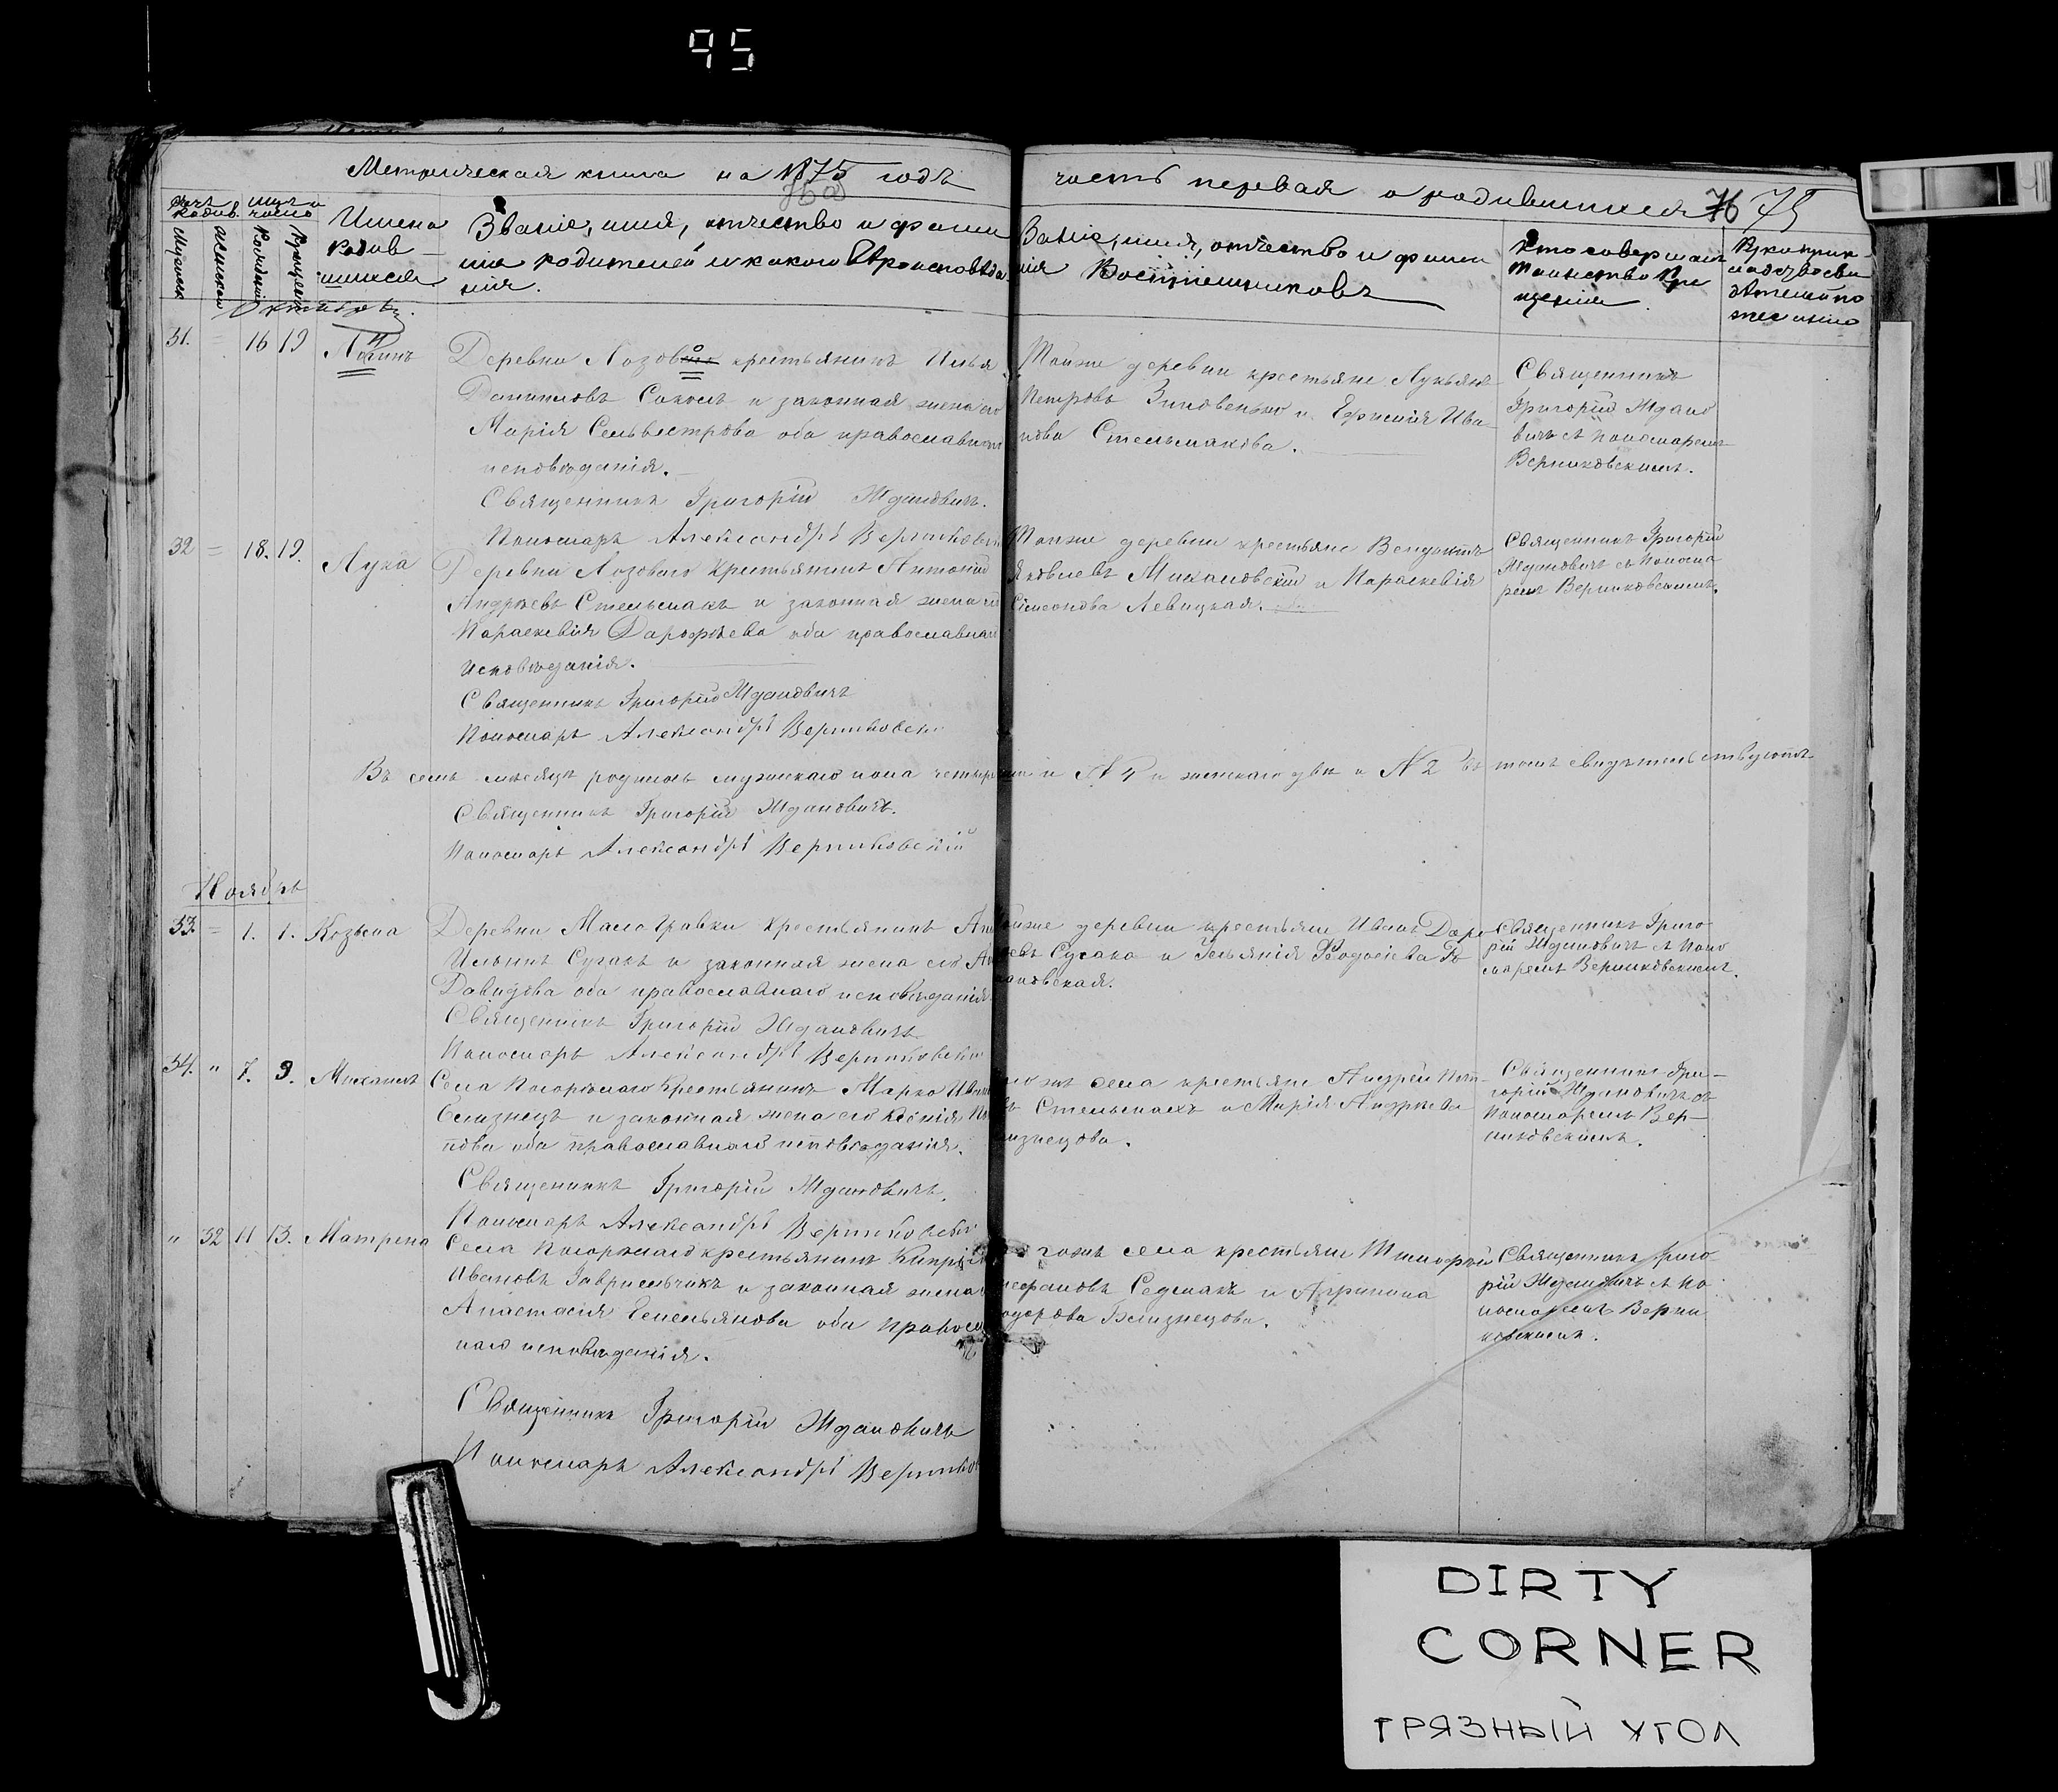 95
Метрическая книга на 1875 годъ
часть первая о родившихся 76 75
Счетъ родив.
Мѣсяцъ и число
Мужеска
Женска
Рожденія
Крещенія
Имена родив-
шихся
Званіе, имя, отчество и фами
лія родителей и какого вѣроисповѣда
нія.
Званіе, имя, отчество и фами
лія Воспріемниковъ
Кто совершалъ
таинство Кре
щенія
Рукоприк-
ладство сви
дѣтелей по
желанію
Октябрь
31. = 16 19 Логинъ
Деревни Лозового крестьянинъ Илья
Даниловъ Соколъ и законная жена его
Марія Сельвестрова оба православнаго
исповѣданія.
Священникъ Григорій Ждановичъ.
Пономарь Александръ Верниковскій
Тойже деревни крестьяне Лукьянъ
Петровъ Зиновенько и Ефимія Ива
нова Стельмахова.
Священникъ
Григорій Ждано
вичъ съ пономаремъ
Верниковскимъ.
32 = 18. 19. Лука
Деревни Лозоваго Крестьянинъ Антоній
Андреевъ Стельмахъ и законная жена его
Параскевія Дарофѣева оба православнаго
исповѣданія.
Священникъ Григорій Ждановичъ
Пономарь Александръ Верниковскій
Тойже деревни крестьяне Венедиктъ
Яковлевъ Михаловскій и Параскевія
Симеонова Левицкая.
Священникъ Григорій
Ждановичъ съ Понома
ремъ Верниковскимъ.
Въ семъ мѣсяцѣ родилось мужескаго пола четыре и № 4 и женскаго двѣ и № 2 въ томъ свидѣтельствуютъ
Священникъ Григорій Ждановичъ.
Пономарь Александръ Верниковскій
Ноябрь
33. = 1. 1. Козьма
Деревни Мало Травки крестьянинъ
Ильинъ Сусакъ и законная жена его
Давидова оба православнаго исповѣданія.
Священникъ Григорій Ждановичъ
Пономарь Александръ Верниковскій
деревни крестьяне Иванъ Даро
Сусакъ и Ѳеодосіева
Священникъ Григо
рій Ждановичъ съ Поно
маремъ Верниковскимъ.
34. " 7. 9. Михаилъ
Села Погорѣлаго Крестьянинъ Марко
Близнецъ и законная жена его Ксенія
пова оба православнаго исповѣданія.
Священникъ Григорій Ждановичъ.
Пономарь Александръ Верниковскій
села крестьяне Андрей
Стельмахъ и Марія Андреева
изнецова.
Священникъ Гри-
горій Ждановичъ съ
Пономаремъ Вер-
никовскимъ.
" 32 11 13. Матрена
Села Погорѣлаго крестьянинъ
Ивановъ Гаврильчикъ и законная жена
Анастасія Емельянова оба православ
наго исповѣданія.
Священникъ Григорій Ждановичъ
Пономарь Александръ Верников
села крестьяне Тимофей
Седлакъ и Агрипина
Близнецова.
Священникъ Григо-
рій Ждановичъ съ По
номаремъ Верни
ковскимъ.
DIRTY
CORNER
ГРЯЗНЫЙ УГОЛ